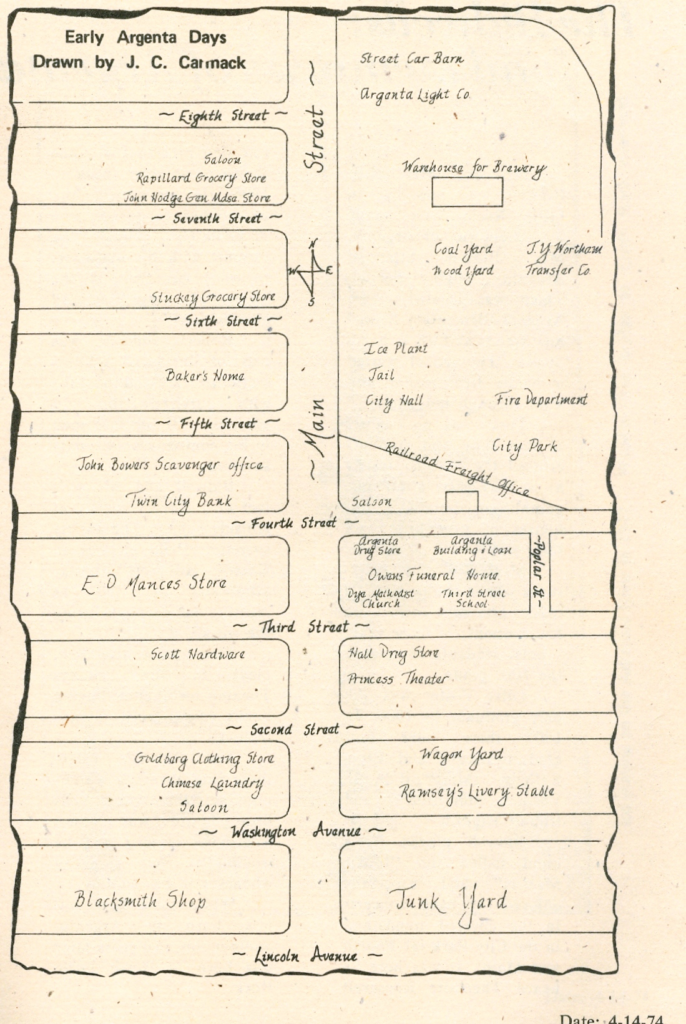 Early Argenta Days
Drawn by J. C. Carmack
Street Car Barn
Argenta Light Co.
~ Eighth Street ~
Saloon
Rapillard Grocery Store
John Hodge Gen Mdse. Store
Warehouse for Brewery
~ Seventh Street ~
N
W E
S
Coal Yard
Wood Yard
J.Y Wortham
Transfer Co.
Stuckey Grocery Store
~ Sixth Street ~
Ice Plant
Jail
City Hall
Fire Department
Baker's Home
~ Fifth Street ~
~ Main Street ~
City Park
Railroad Freight Office
John Bowers Scavenger office
Twin City Bank
Saloon
~ Fourth Street ~
Argenta
Drug Store
Argenta
Building & Loan
Owens Funeral Home
Dye Methodist
Church
Third Street
School
~Poplar St~
E D Mances Store
~ Third Street ~
Scott Hardware
Hall Drug Store
Princess Theater
~ Second Street ~
Goldberg Clothing Store
Chinese Laundry
Saloon
Wagon Yard
Ramsey's Livery Stable
~ Washington Avenue ~
Blacksmith Shop
Junk Yard
~ Lincoln Avenue ~
Date: 4-14-74